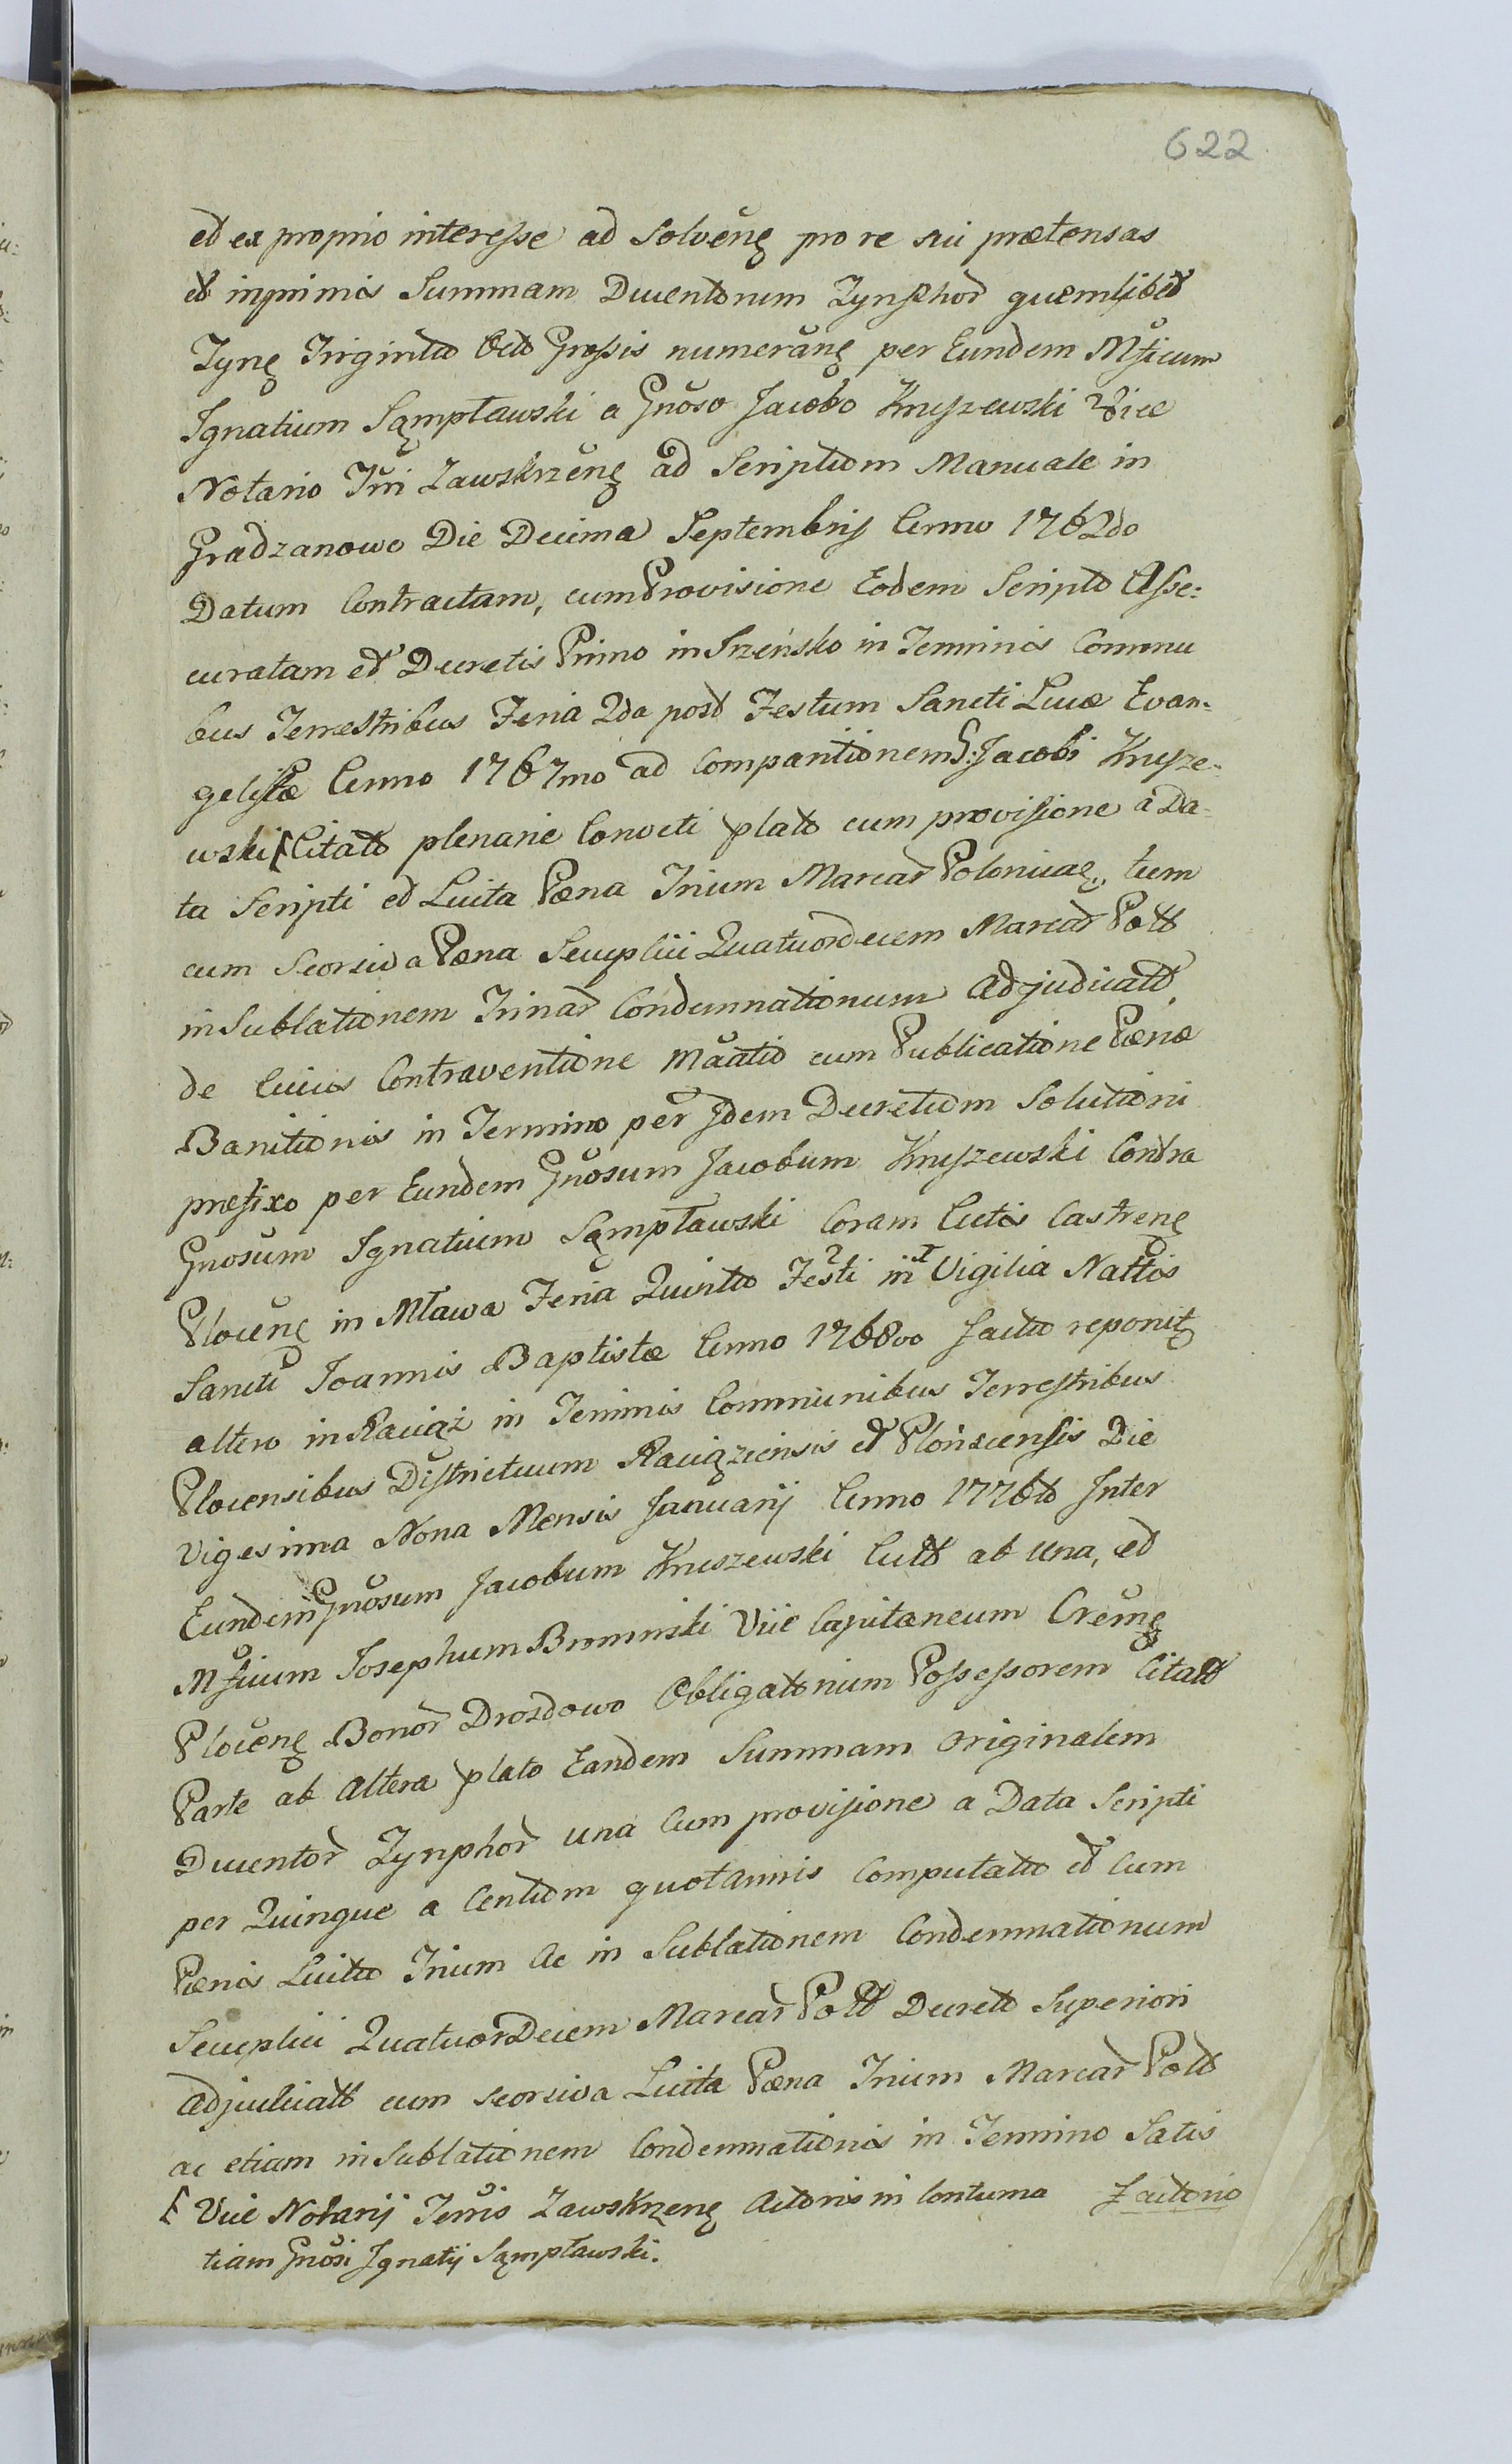 622
et ex proprio interesse ad Solvenḡ pro re sui prætensas
et inprimis Summam Ducentorum Tynphor̄ quemlibet
Tynḡ Triginta Octo Grossis numeranḡ per Eundem Mficum
Ignatium Sąmpławski a Gnoso Jacobo Knyszewski Vice
Notario Trri Zawskrzenḡ ad Scriptum Manuale in
Gradzanowo Die Decima Septembris Anno 1762do
Datum Contractam, cum Provisione Eodem Scripto Asse:
curatam et Decretis Primo in Srzeńsko in Terminis Commu
bus Terrestribus Feria 2da post Festum Sancti Lucæ Evan:
gelistæ Anno 1767mo ad Comparitionem G: Jacobi Knysze:
wski [ Citato plenarie Convicti plato cum provisione a Da
ta Scripti et Luita Pæna Trium Marcar̄ Polonicaḡ, tum
cum Seorsiva Pæna Sexuplici Quatuordecem Marcar̄ Poll
in Sublationem Trinar̄ Condemnationum adjudicatt
de Cuius Contraventione Maatio cum Publicatione Pænæ
Banitionis in Termino per Idem Decretum Solutioni
præfixo per Eundem Gnosum Jacobum Knyszewski Contra
Gnosum Ignatium Sąmpławski Coram Actis Castrenḡ
Plocenḡ in Mława Feria Quinta Festi in Vigilia Nattis
Sancti Joannis Baptistæ Anno 1768vo facta reponitḡ
altero in Raciąż in Terminis Communibus Terrestribus
Plocensibus Districtuum Raciąziensis et Płońscensis Die
Vigesima Nona Mensis Januarij Anno 1776to Inter
Eundem Gnosum Jacobum Knyszewski Actt ab una, et
Mficum Josephum Bromirski Vice Capitaneum Cremḡ
Plocenḡ Bonor̄ Drozdowo Obligatorium Possessorem Citatt
Parte ab altera plato Eandem Summam originalem
Ducentor̄ Tynphor̄ una cum provisione a Data Scripti
per Quinque a Centum quotannis Computatto et cum
Pænis Luita Trium ac in Sublationem Condemnationum
Sexuplici QuatuorDecem Marcar̄ Poll Decreto Superiori
adjudicatt cum seorsiva Luita Pæna Trium Marcar̄ Poll
ac etiam in Sublationem Condemnationis in Termino Satis
[ Vice Notarij Terris Zawskrzenḡ Actoris in Contuma
tiam Gnosi Ignatij Sąmpławski.
Factorio